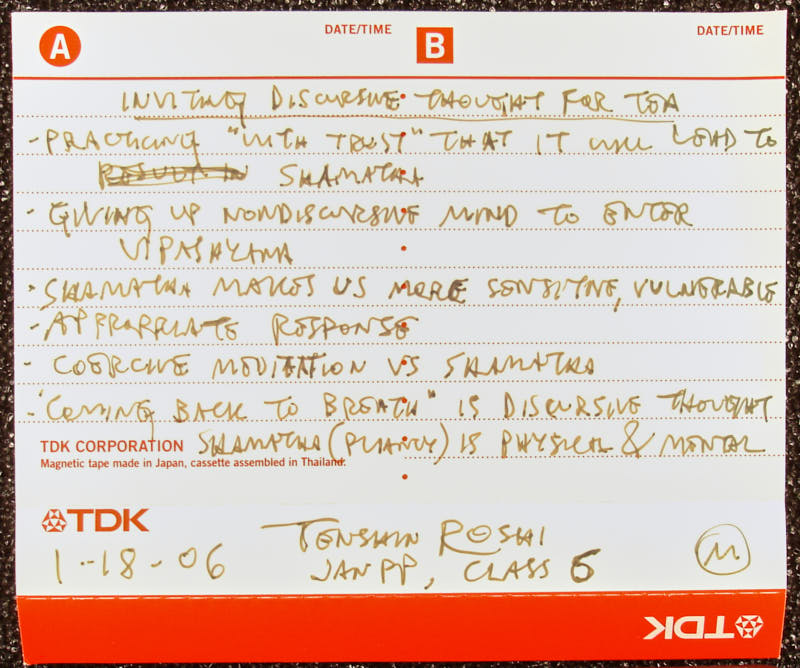 A DATE/TIME B DATE/TIME
INVITING DISCURSIVE THOUGHT FOR TEA
- PRACTICING "WITH TRUST" THAT IT WILL LEAD TO
RESULT IN SHAMATHA
- GIVING UP NONDISCURSIVE MIND TO ENTER
VIPASHYANA
- SHAMATHA MAKES US MORE SENSITIVE, VULNERABLE
- APPROPRIATE RESPONSE
- COERCIVE MEDITATION VS SHAMATHA
- "COMING BACK TO BREATH" IS DISCURSIVE THOUGHT
TDK CORPORATION SHAMATHA (PLIANCY) IS PHYSICAL & MENTAL
Magnetic tape made in Japan, cassette assembled in Thailand.
TDK
TENSHIN ROSHI
1-18-06 JAN PP, CLASS 5 M
TDK